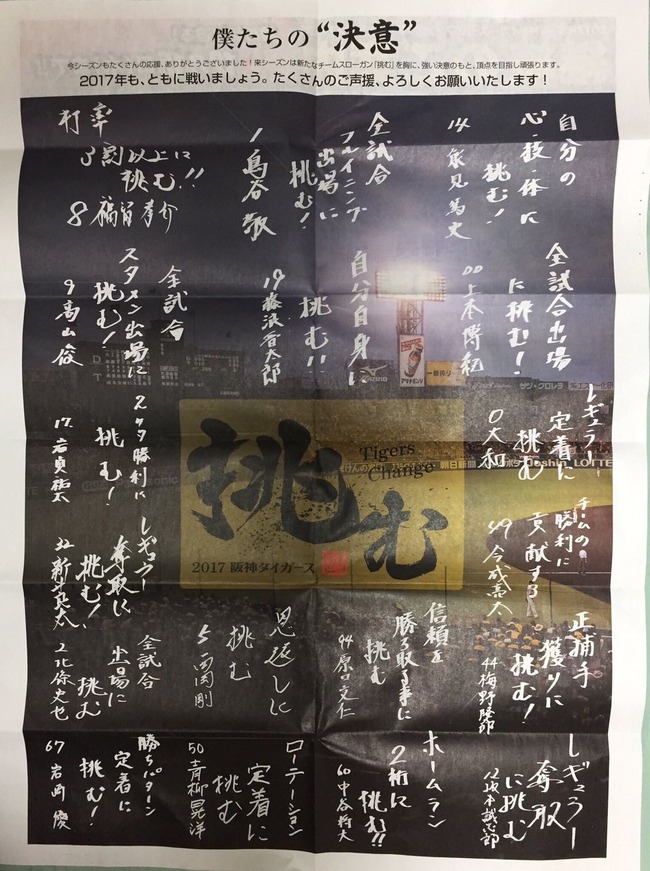 僕たちの“決意”
今シーズンもたくさんの応援、ありがとうございました！来シーズンは新たなチームスローガン「挑む」を胸に、強い決意のもと、頂点を目指し頑張ります。
2017年も、ともに戦いましょう。たくさんのご声援、よろしくお願いいたします！
自分の
心・技・体に
挑む！
14 能見篤史
全試合
フルイニング
出場に
挑む！
1 鳥谷敬
打率
3割以上に
挑む!!
8 福留孝介
全試合出場
に挑む！
00 上本博紀
自分自身に
挑む!!
19 藤浪晋太郎
全試合
スタメン出場に
挑む！
9 高山俊
レギュラー
定着に
挑む
0 大和
2ケタ勝利に
挑む！
17 岩貞祐太
チームの
勝利に
貢献する
49 今成亮太
レギュラー
奪取に
挑む！
32 新井良太
正捕手
獲りに
挑む！
44 梅野隆太郎
信頼を
勝ち取る事に
挑む
94 原口文仁
恩返しに
挑む
5 西岡剛
全試合
出場に
挑む
2 北條史也
レギュラー
奪取
に挑む
12 坂本誠志郎
ホームラン
2桁に
挑む!!
60 中谷将大
ローテーション
定着に
挑む
50 青柳晃洋
勝ちパターン
定着に
挑む！
67 岩崎優
挑む
Tigers
Change
2017 阪神タイガース
MIZUNO
アリナミン
一番搾り
サンクロレラ
朝日新聞
Joshin
LOTTE